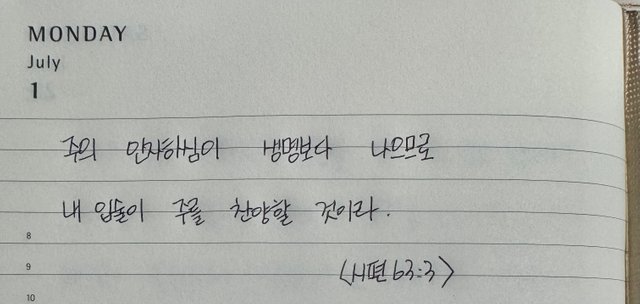 MONDAY
July
1
주의 인자하심이 생명보다 나으므로
내 입술이 주를 찬양할 것이라.
8
9
<시편 63:3>
10